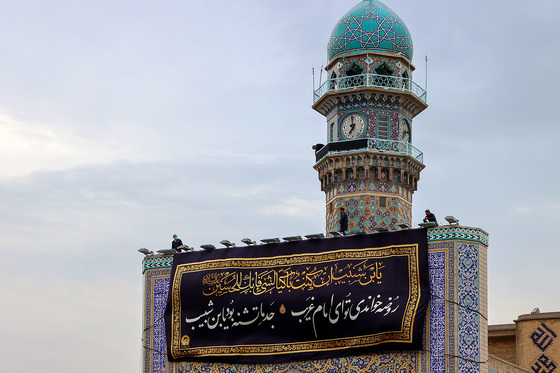 یابن شبیب ان کنت باکیا لشیء فابک للحسین
روضه خواندی تو ای امام غریب جد ما تشنه بود یابن شبیب